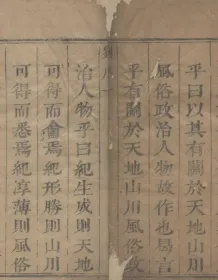 乎曰以其有關於天地山川
風俗政治人物故作也曷言
乎有關於天地山川風俗政
治人物乎曰紀生成則天地
可得而會焉紀形勝則山川
可得而悉焉紀淳薄則風俗